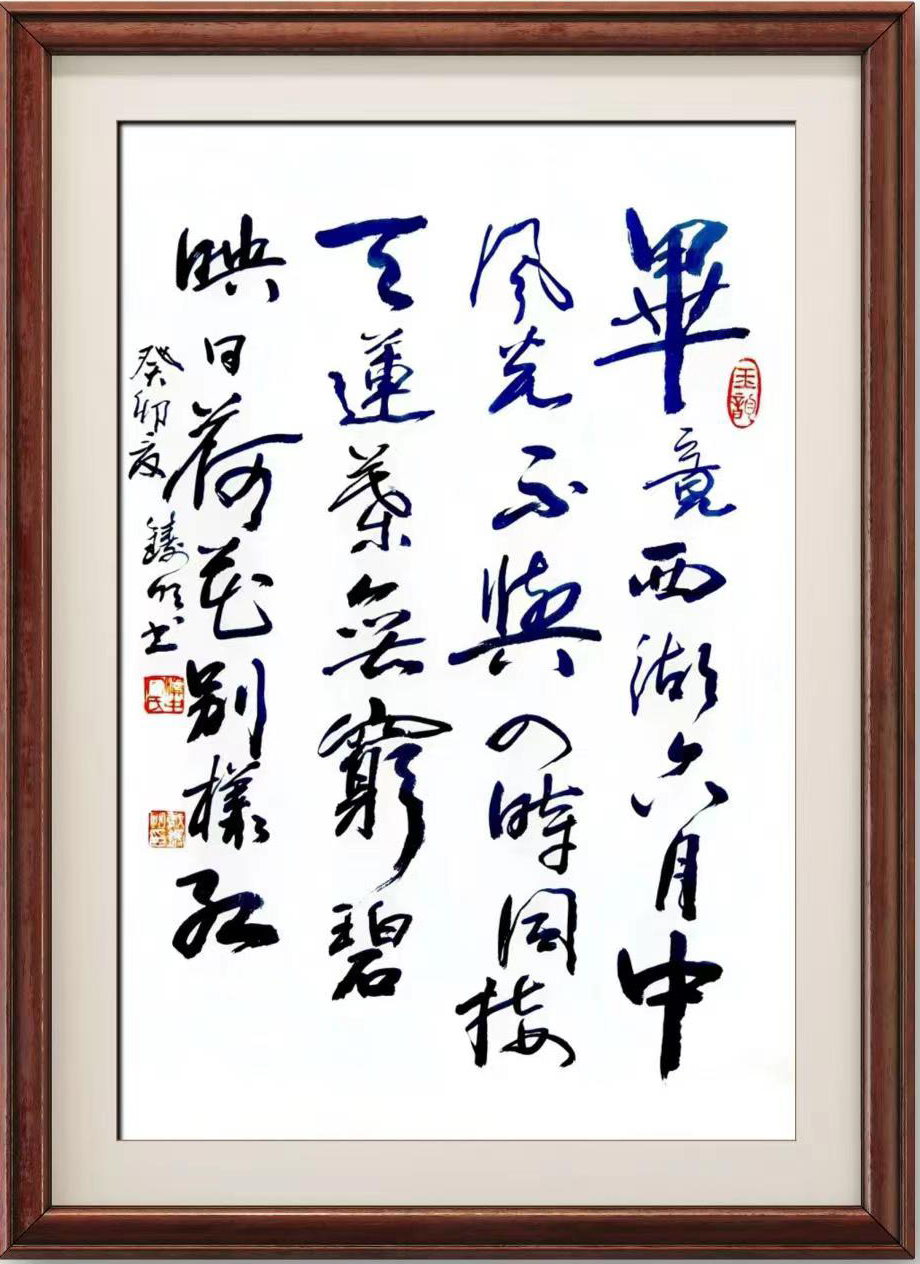 畢竟西湖六月中
玉韻
風光不與四時同接
天蓮葉無窮碧
映日荷花別樣紅
癸卯夏 鑄明书